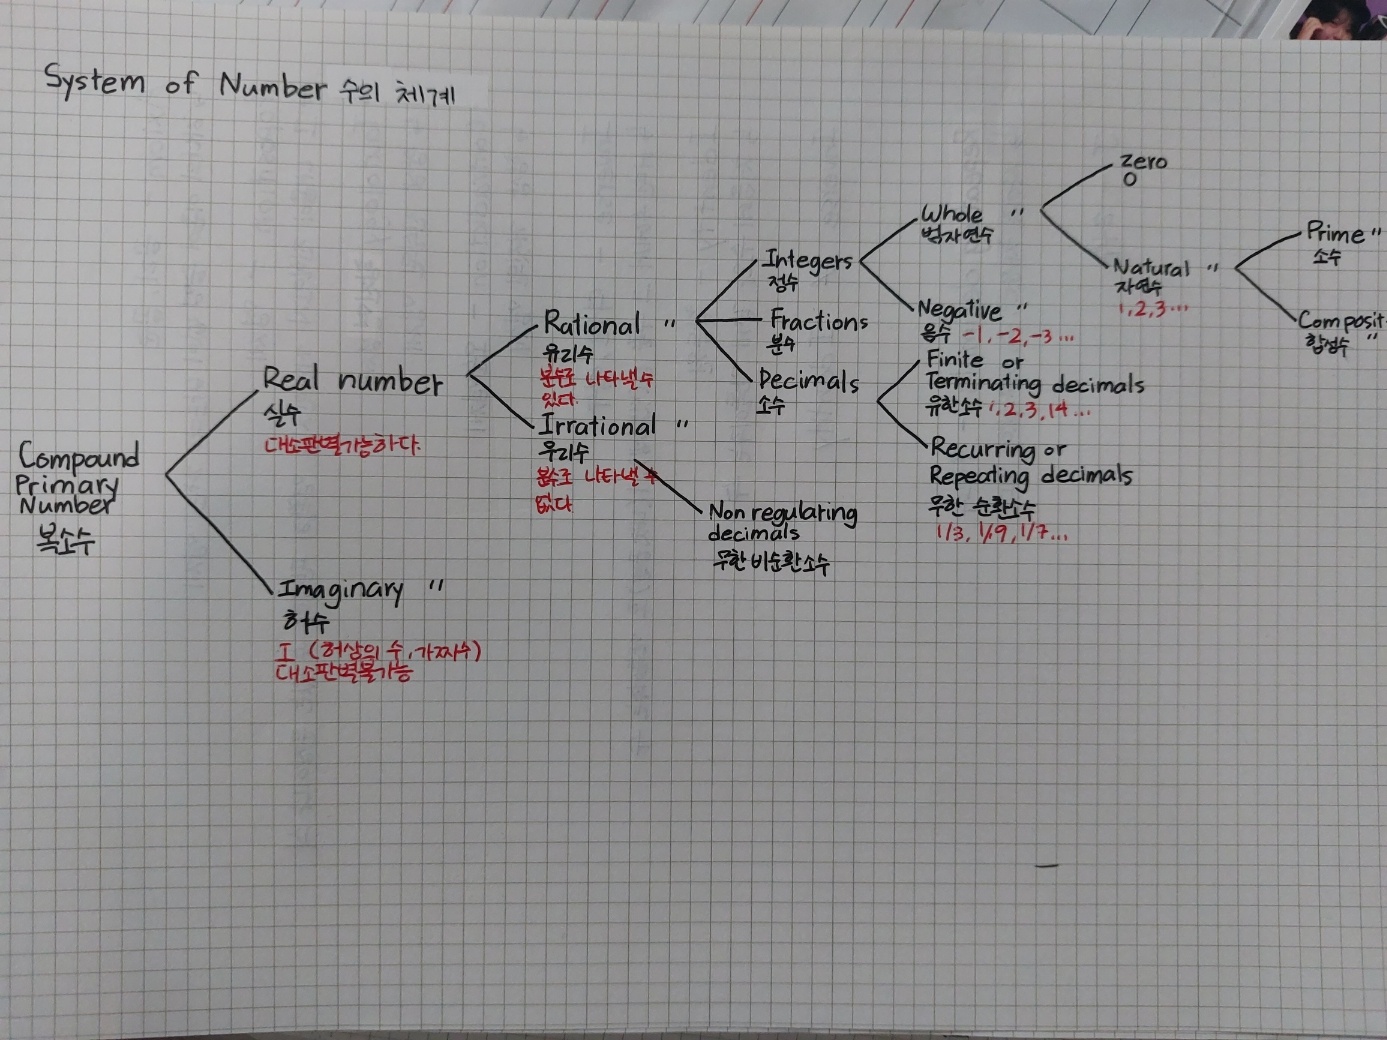 System of Number 수의 체계
Compound
Primary
Number
복소수
Real number
실수
대소판별가능하다.
Imaginary "
허수
I (허상의 수, 가짜수)
대소판별불가능
Rational "
유리수
분수로 나타낼 수
있다.
Irrational "
무리수
분수로 나타낼 수
없다
Non regulating
decimals
무한 비순환소수
Integers
정수
Fractions
분수
Decimals
소수
Whole "
범자연수
Negative "
음수 -1, -2, -3 ...
Finite or
Terminating decimals
유한소수 1, 2, 3, 14 ...
Recurring or
Repeating decimals
무한 순환소수
1/3, 1/9, 1/7...
Zero
0
Natural "
자연수
1, 2, 3 ...
Prime "
소수
Composit
합성수 "